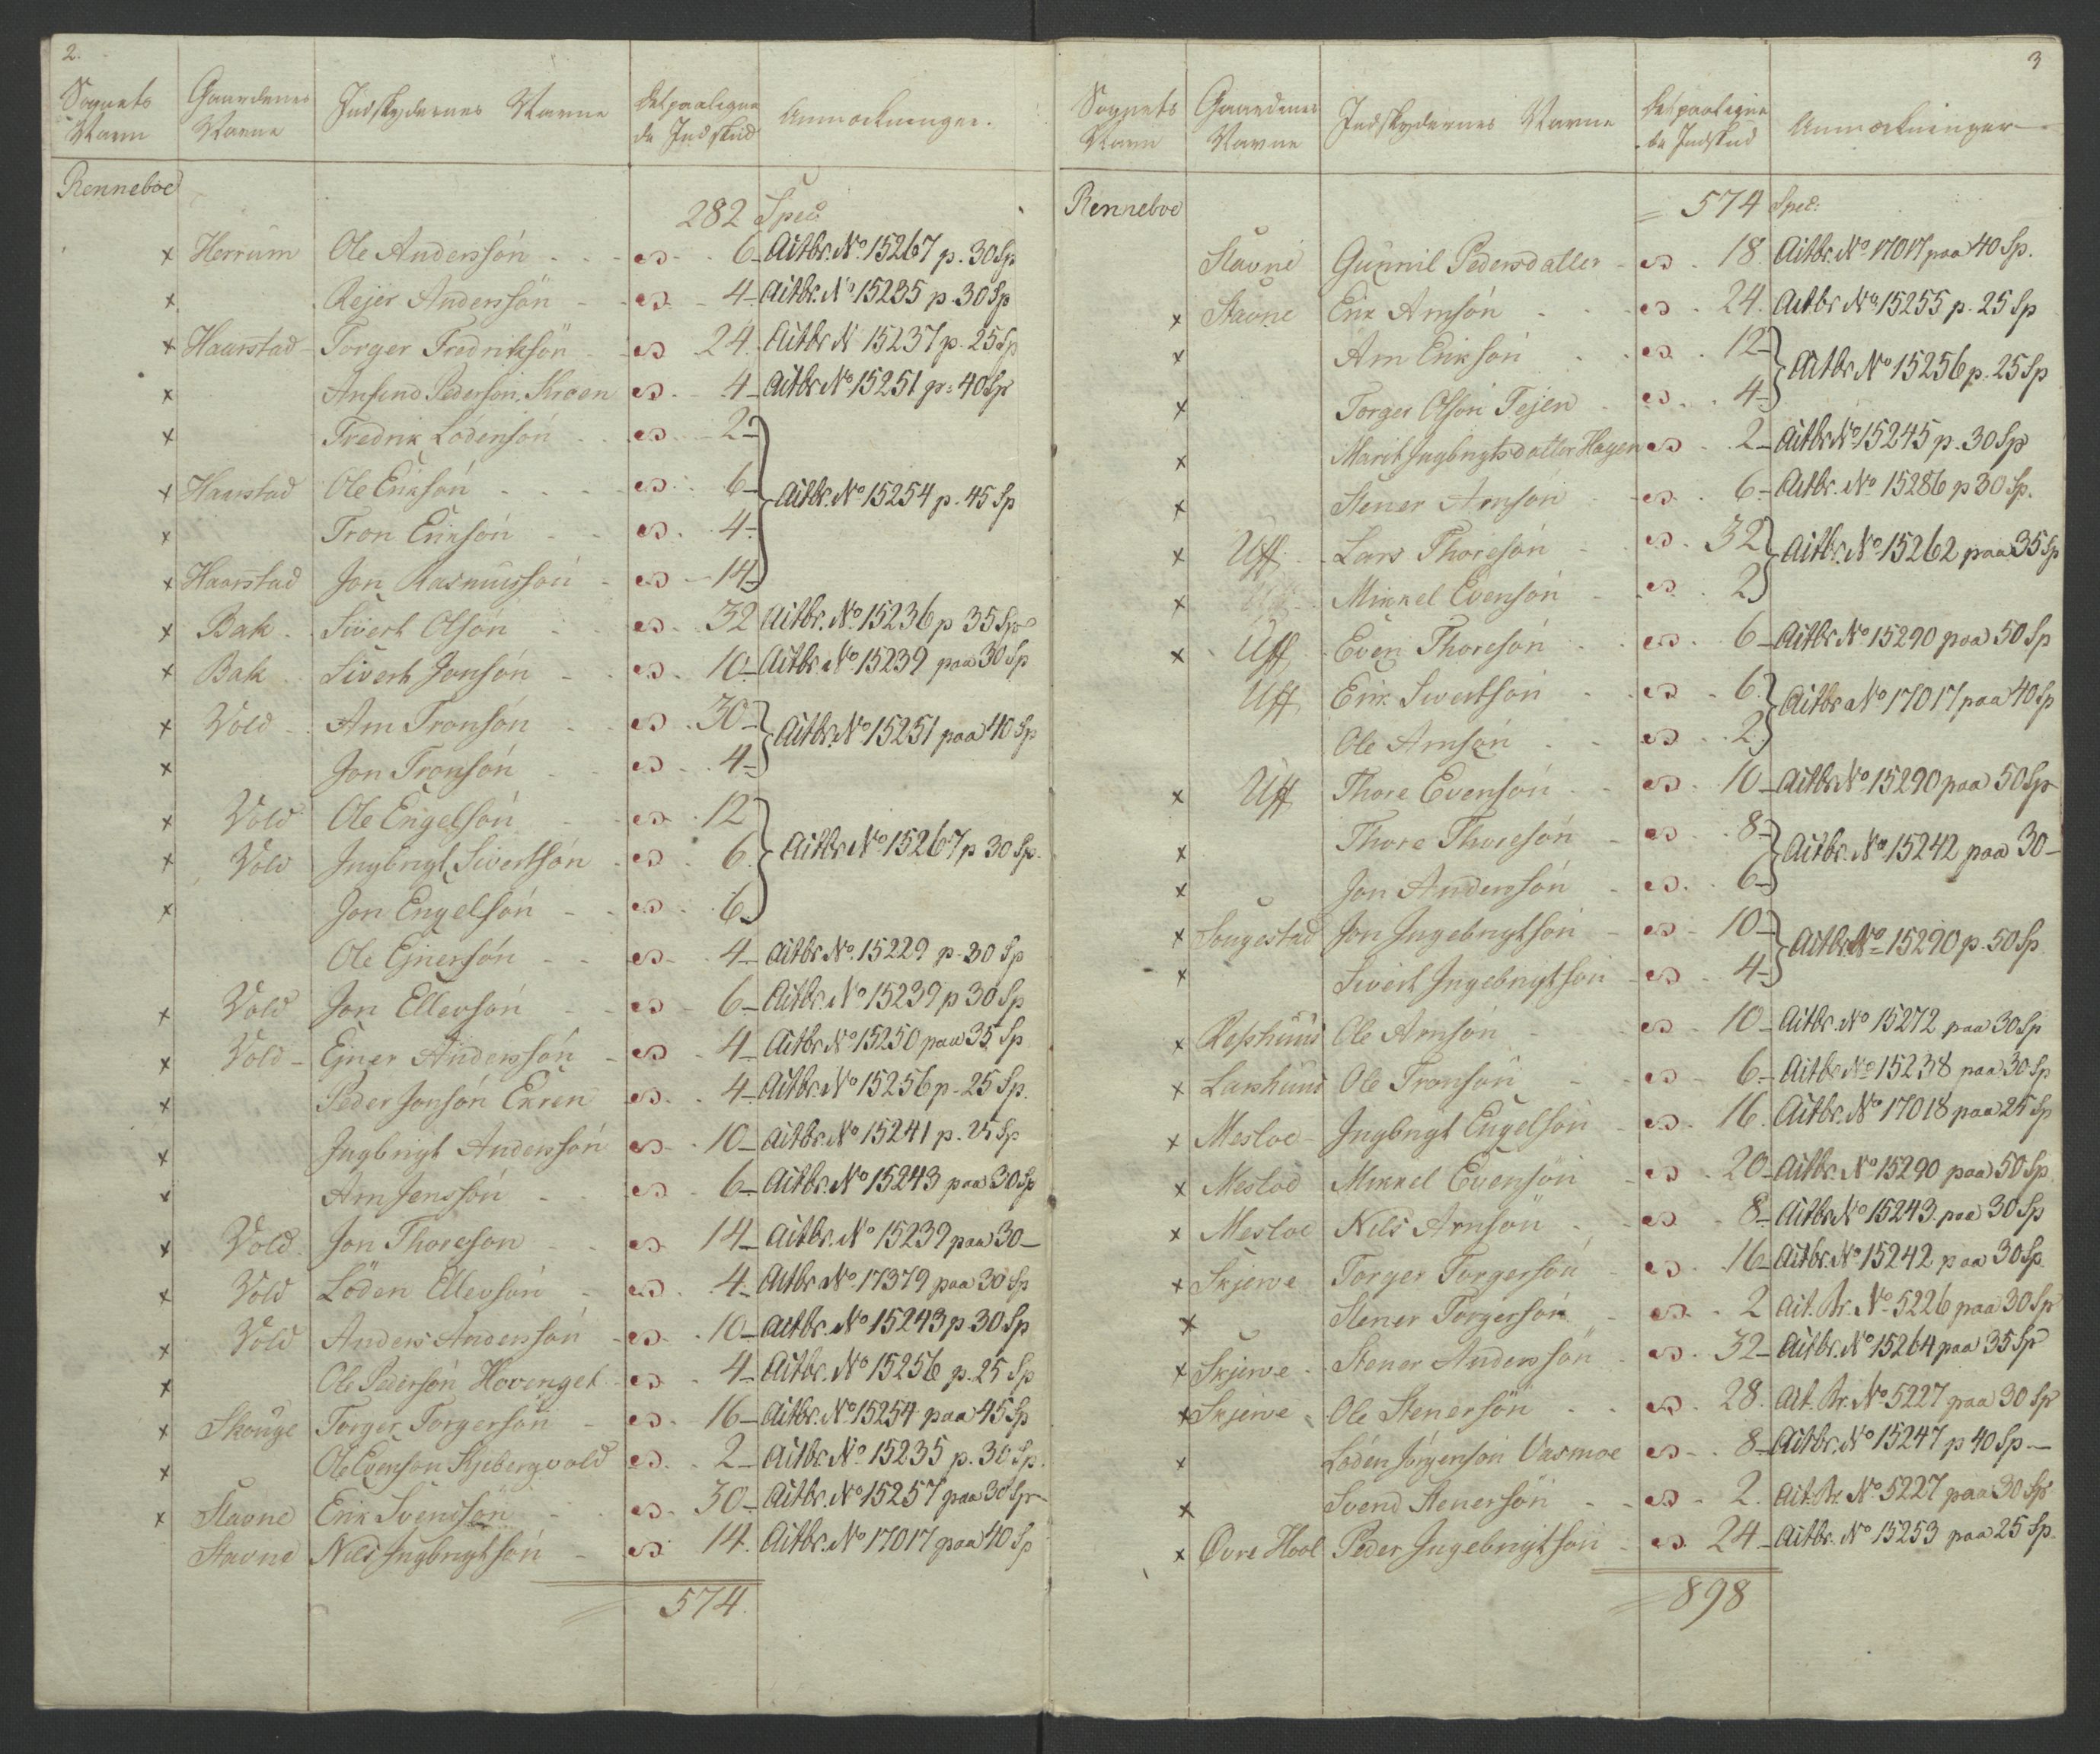 2.
Sognets Navn | Gaardenes Navne | Indskydernes Navne | Det paaligne- de Indskud | Anmærkninger.
Renneboe
282 Spec
x Herrum Ole Andersön 6 Actbr. No 15267 p. 30 Sp
x Rejer Andersön 4 Actbr. No 15235 p. 30 Sp
x Haarstad Torger Fredriksön 24. Actbr N 15237 p. 25 Sp
x Anfind Pedersön Kroen 4 Actbr No 15251 p. 40 Sp
x Fredrik Lödensön 2
x Haarstad Ole Eriksön 6 Actbr. No 15254 p. 45 Sp
x Tron Eriksön 4
x Haarstad Jon Rasmussön 14
x Bak Sivert Olsön 32 Actbr. No 15236 p 35 Sp
x Bak Sivert Jonsön 10 Actbr No 15239 paa 30 Sp
x Vold Arn Tronsön 30 Actbr. No 15251 paa 40 Sp
x Jon Tronsön 4
x Vold Ole Engelsön 12
x Vold Ingbrigt Sivertsön 6 Actbr No 15267 p 30 Sp.
x Jon Engelsön 6
Ole Ejnersön 4 Actbr. No. 15229 p. 30 Sp
x Vold Jon Ellevsön 6 Actbr. No 15239 p 30 Sp
x Vold Ejner Andersön 4 Actbr No 15250 paa 35 Sp
x Peder Jonsön Ekren 4 Actbr. No 15256 p. 25 Sp.
x Ingbrigt Andersön 10 Actbr. No 15241 p. 25 Sp
x Arn Jensön 6 Actbr. No 15243 paa 30 Sp
x Vold Jon Thoresön 14 Actbr. No 15239 paa 30
x Vold Löden Ellevsön 4 Actbr No 17379 paa 30 Sp
x Vold Anders Andersön 10 Actbr. No 15243 p. 30 Sp
x Ole Pedersön Hovenget 4 Actbr. No 15256 p. 25 Sp
x Skouge Torger Torgersön 16 Actbr. No 15254 paa 45 Sp
x Ole Evensön Kjebergvold 2 Actbr. No 15235 p. 30 Sp.
x Stavne Erik Svendsön 30 Actbr. No 15257 paa 30 Sp
Stavne Nils Ingbrigtsön 14. Actbr. No 17017 paa 40 Sp
574.
3
Sognets Navn | Gaardenes Navne | Indskydernes Navne | Det paaligne- de Indskud | Anmærkninger
Renneboe
574 Spec:
Stavne Gunnil Pedersdatter 18. Actbr. No 17017 paa 40 Sp.
x Stavne Erik Arnsön 24. Actbr No 15255 p. 25 Sp
x Arn Eriksön 12 Actbr No 15256 p. 25 Sp
x Torger Olsön Tejen 4
x Marit Ingbrigtsdatter Hagen 2 Actbr No 15245 p. 30 Sp
x Stener Arnsön 6 Actbr. No 15286 p 30 Sp.
x Uff Lars Thoresön 32 Actbr. No 15262 paa 35 Sp
x Mikkel Evensön 2
x Uff Even Thoresön 6 Actbr No 15290 paa 50 Sp
Uff Erik Sivertsön 6. Actbr No 17017 paa 40 Sp
Ole Arnsön 2.
x Uff Thore Evensön 10 Actbr No 15290 paa 50 Sp
x Thore Thoresön 8 Actbr. No 15242 paa 30
x Jon Andersön 6
x Sougestad Jon Ingebrigtsön 10 Actbr No 15290 p. 50 Sp
x Sivert Ingebrigtsön 4
x Reshuus Ole Arnsön 10 Actbr. No 15272 paa 30 Sp
x Larshuus Ole Tronsön 6 Actbr No 15238 paa 30 Sp
x Mesloe Ingbrigt Engelsön 16. Actbr. No 17018 paa 25 Sp
x Mesloe Mikkel Evensön 20 Actbr. No 15290 paa 50 Sp
x Mesloe Nils Arnsön 8 Actbr No 15243 paa 30 Sp
x Skjerve Torger Torgersön 16 Actbr. No 15242 paa 30 Sp.
x Stener Torgersön 2 Act. Nr. No 5226 paa 30 Sp
x Skjerve Stener Andersön 32 Actbr. No 15264 paa 35 Sp
x Skjerve Ole Stenersön 28. Act. Nr. No 5227 paa 30 Sp
x Löden Jörgensön Vasmoe 8 Actbr. No 15247 p 40 Sp
x Svend Stenersön 2. Act. Nr No 5227 paa 30 Sp
x Ovre Hool Peder Ingebrigtsön 24 Actbr. No 15253 paa 25 Sp.
898